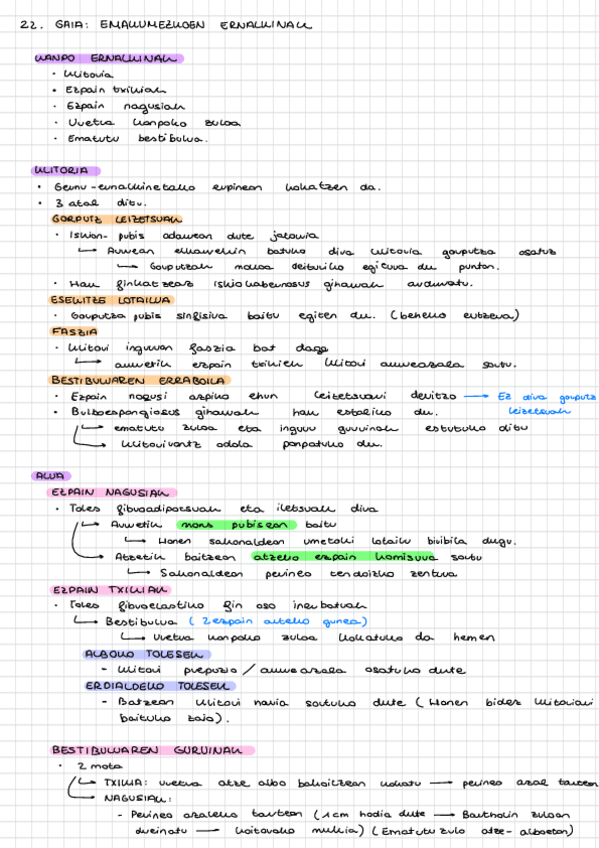 22. GAIA: EMAKUMEZKOEN ERNALKINAK
KANPO ERNALKINAK
• Klitoria
• Ezpain txikiak
• Ezpain nagusiak
• Uretra kanpoko zuloa
• Ematutu bestibulua.
KLITORIA
• Gernu-ernalkinetako erpinean kokatzen da.
• 3 atal ditu.
GORPUTZ LEIZETSUAK
• Iskion-pubis adarrean dute jatorria
↳ Aurrean elkarrekin batuko dira klitoria gorputza osatuz
↳ Gorputzak makoa deituriko egitura du puntan.
• Hau finkatzeaz iskiokabernosus giharrak arduratu.
ESEKITZE LOTAILUA
• Gorputza pubis sinfisira baitu egiten du. (beheko eutzera)
FASZIA
• Klitori inguruan faszia bat dago
↳ aurretik ezpain txikien klitori aurreazala sortu.
BESTIBULUAREN ERRABOILA
• Ezpain nagusi azpiko ehun leizetsuari deritzo → Ez dira gorputz leizetsuak
• Bulboespongiosus giharrak hau estaliko du.
↳ ematutu zuloa eta inguru guruinak estutuko ditu
↳ Klitorirantz odola ponpatuko du.
ALUA
EZPAIN NAGUSIAK
• Toles fibroadiposeuak eta iletsuak dira
↳ Aurretik mons pubisean baitu
↳ Honen sakonaldean umetoki lotailu biribila dugu.
↳ Atzetik baitzean atzeko ezpain komisura sortu
↳ Sakonaldean perineo tendoizko zentroa
EZPAIN TXIKIAK
• Toles fibroelastiko fin oso inerbatuak
↳ Bestibulua (2 ezpain arteko gunea)
↳ Uretra kanpoko zuloa kokatuko da hemen
ALBOKO TOLESEK
- Klitori prepuzio / aurreazala osatuko dute
ERDIALDEKO TOLESEK
- Batzean klitori naria sortuko dute (Honen bidez klitoriari
baituko zaio).
BESTIBULUAREN GURUINAK
• 2 mota
↳ TXIKIA: uretra atze albo bakoitzean kokatu → perineo azal tartean
↳ NAGUSIAK:
- Perineo azaleko tartean (1cm hodia dute → Bartholin zuloan
dreinatu → koitorako mukia) (Ematutu zulo atze-alboetan)